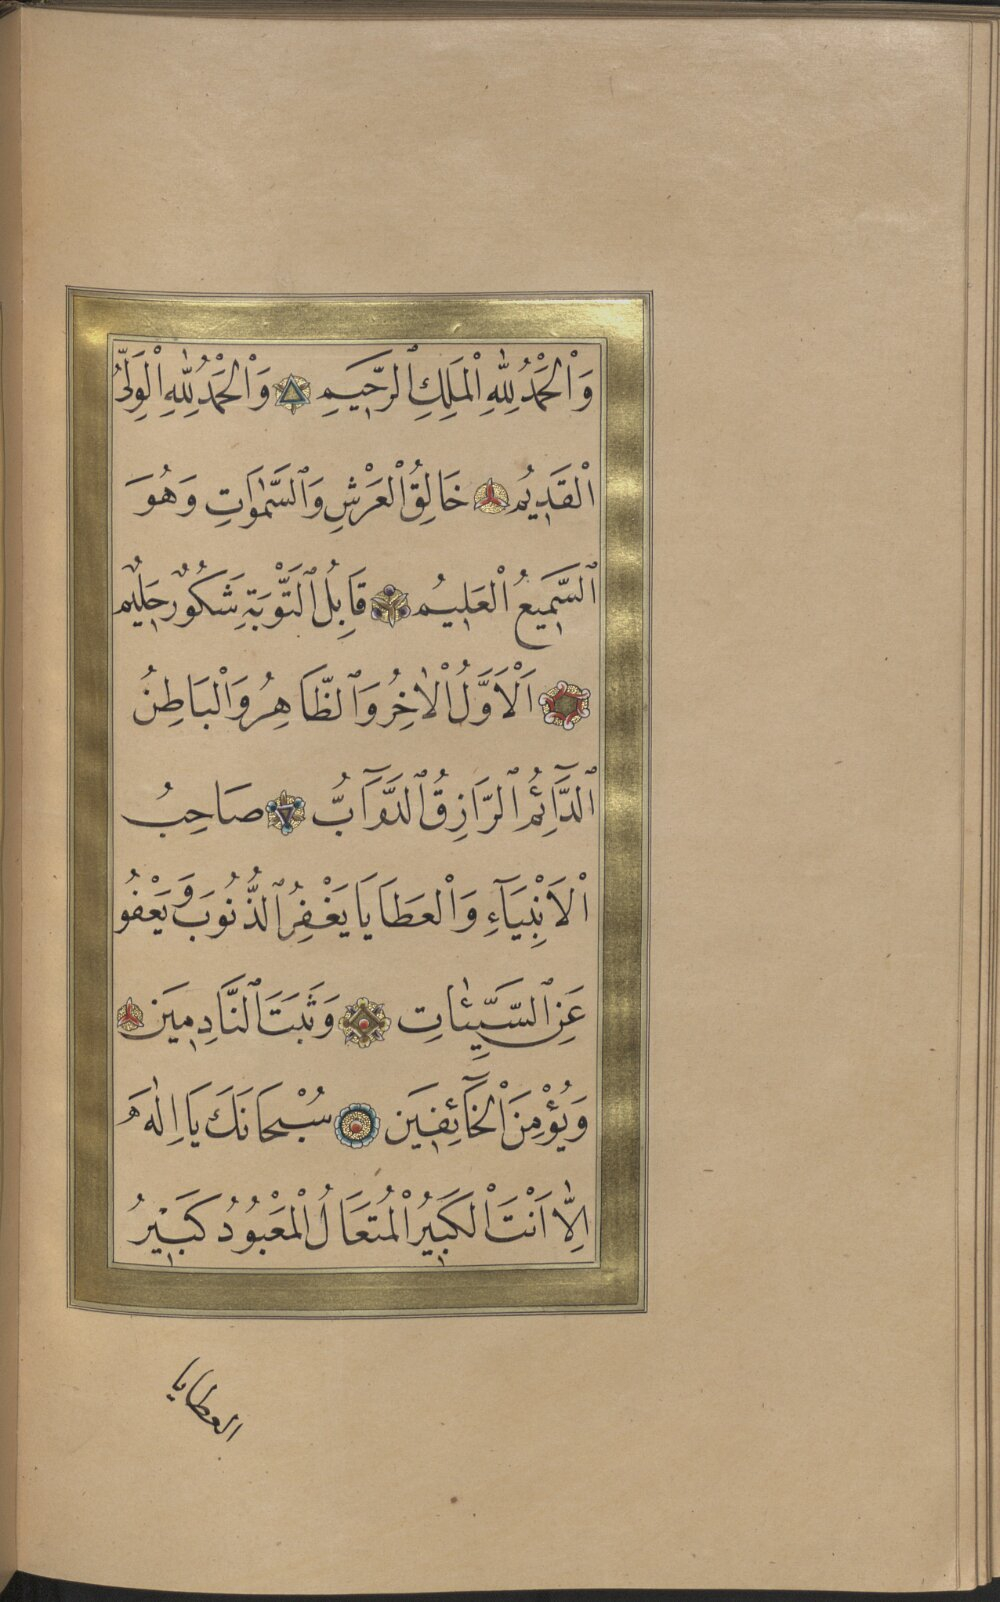 وَالْحَمْدُ لِلّٰهِ الْمَلِكِ الرَّحِيمِ وَالْحَمْدُ لِلّٰهِ الْوَلِيُّ
الْقَدِيمُ خَالِقُ الْعَرْشِ وَالسَّمٰوَاتِ وَهُوَ
السَّمِيعُ الْعَلِيمُ قَابِلُ التَّوْبَةِ شَكُورٌ حَلِيمٌ
اَلْاَوَّلُ الْاٰخِرُ وَالظَّاهِرُ وَالْبَاطِنُ
الدَّآئِمُ الرَّازِقُ الدَّوَآبُّ صَاحِبُ
الْاَنْبِيَآءِ وَالْعَطَايَا يَغْفِرُ الذُّنُوبَ وَيَعْفُو
عَنِ السَّيِّئٰاتِ وَثَبَتَ النَّادِمِيَن
وَيُؤْمِنَ الْخَآئِفِيَن سُبْحَانَكَ يَا اِلٰهَ
اِلَّا اَنْتَ الْكَبَيِرُ الْمُتَعَالُ الْمَعْبُوُدُ كَبَيِرُ
العطايا